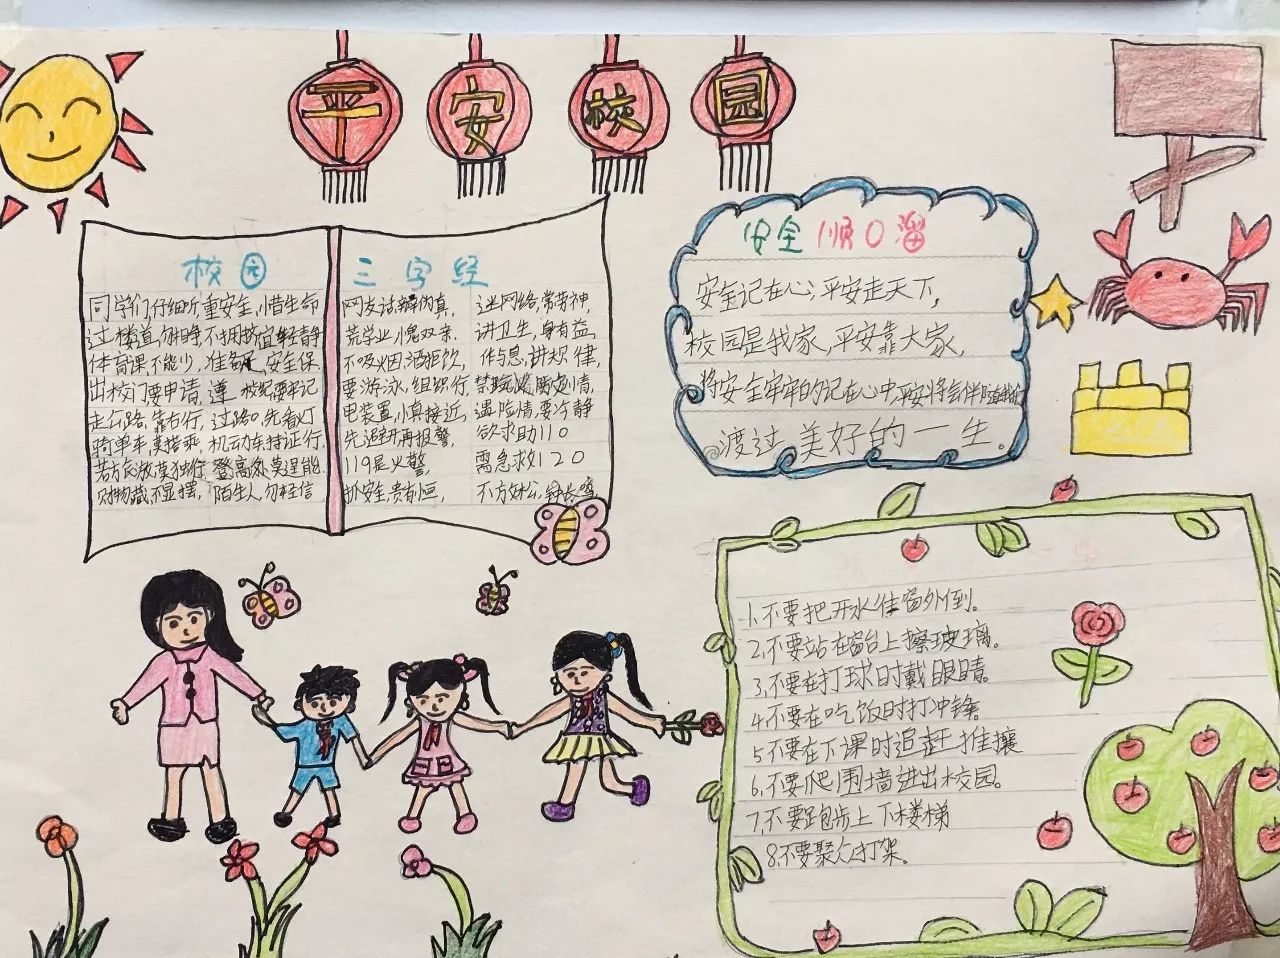 平安校园
校园三字经
同学们,仔细听,重安全,惜生命
过楼道,勿相争,不拥挤,宜轻静
体育课,不能少,准备,安全保
出校门,要申请,遵校纪,要牢记
走公路,靠右行,过路口,先看灯
骑单车,莫搭乘,机动车,持证行
莫独行,登高处,莫逞能
财物藏,不显摆,陌生人,勿轻信
网友话,辨伪真,迷网络,常劳神,
荒学业,愧双亲.讲卫生,身有益,
不吸烟,酒拒饮,作与息,讲规律,
要游泳,组织行,
电装置,慎接近,遇险情,要冷静
先追救,再报警,欲求助110
119是火警,需急救120
抓安全,贵有恒,不放松,钟长鸣
安全顺口溜
安全记在心,平安走天下,
校园是我家,平安靠大家,
将安全牢牢的记在心中,平安将会伴随我们
渡过美好的一生。
1、不要把开水往窗外倒。
2、不要站在窗台上擦玻璃。
3、不要在打球时戴眼睛。
4、不要在吃饭时打冲锋。
5、不要在下课时追赶推攘
6、不要爬围墙进出校园。
7、不要跑步上下楼梯
8、不要聚众打架。